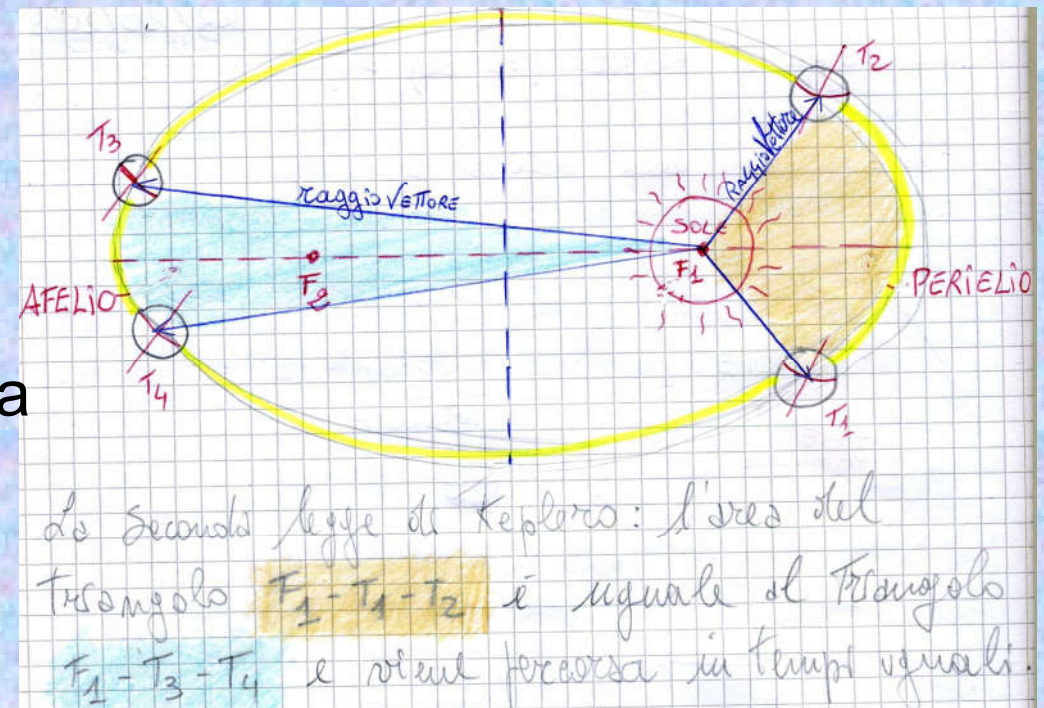 T2
T3
Raggio Vettore
raggio VETTORE
SOLE
F1
F2
AFELIO
PERIELIO
a
T4
T1
La Seconda legge di Keplero: l'area del
Triangolo F1-T1-T2 è uguale al Triangolo
F1-T3-T4 e viene percorsa in tempi uguali.